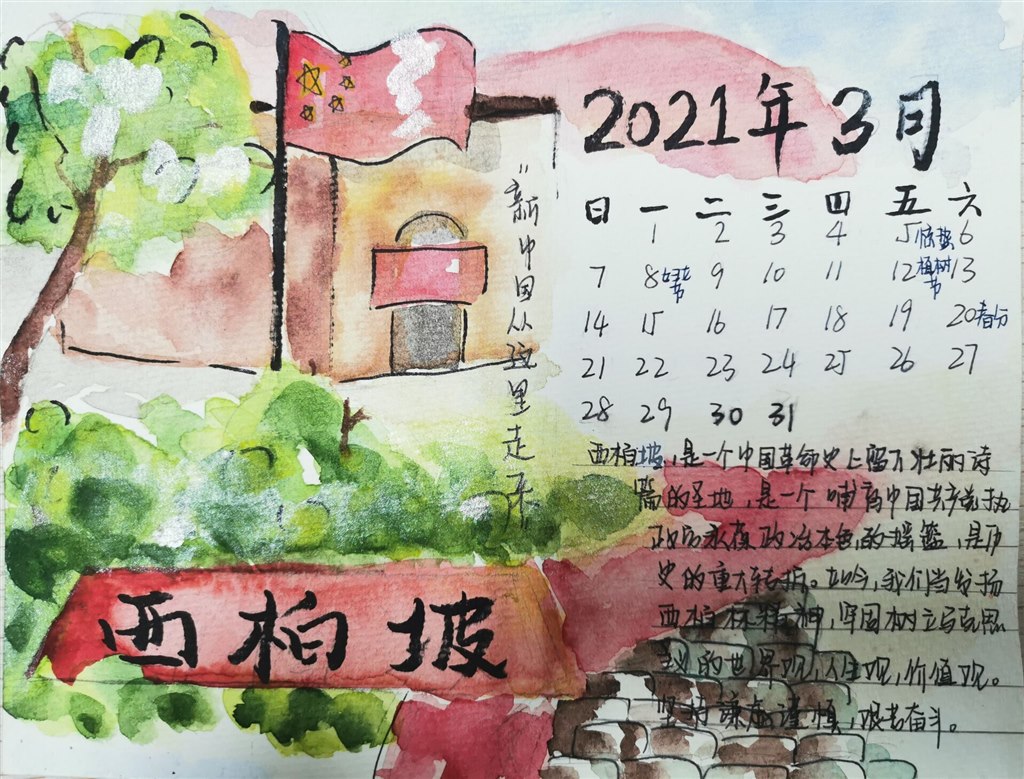 2021年3月
日 一 二 三 四 五 六
1 2 3 4 5惊蛰 6
7 8妇女节 9 10 11 12植树节 13
14 15 16 17 18 19 20春分
21 22 23 24 25 26 27
28 29 30 31
"新中国从这里走来
西柏坡,是一个中国革命史上写下壮丽诗
篇的圣地,是一个哺育中国共产党执
政后永葆政治本色的摇篮,是历
史的重大转折。如今,我们当发扬
西柏坡精神,坚固树立马克思
主义的世界观,人生观,价值观。
坚持谦虚谨慎,艰苦奋斗。
西柏坡